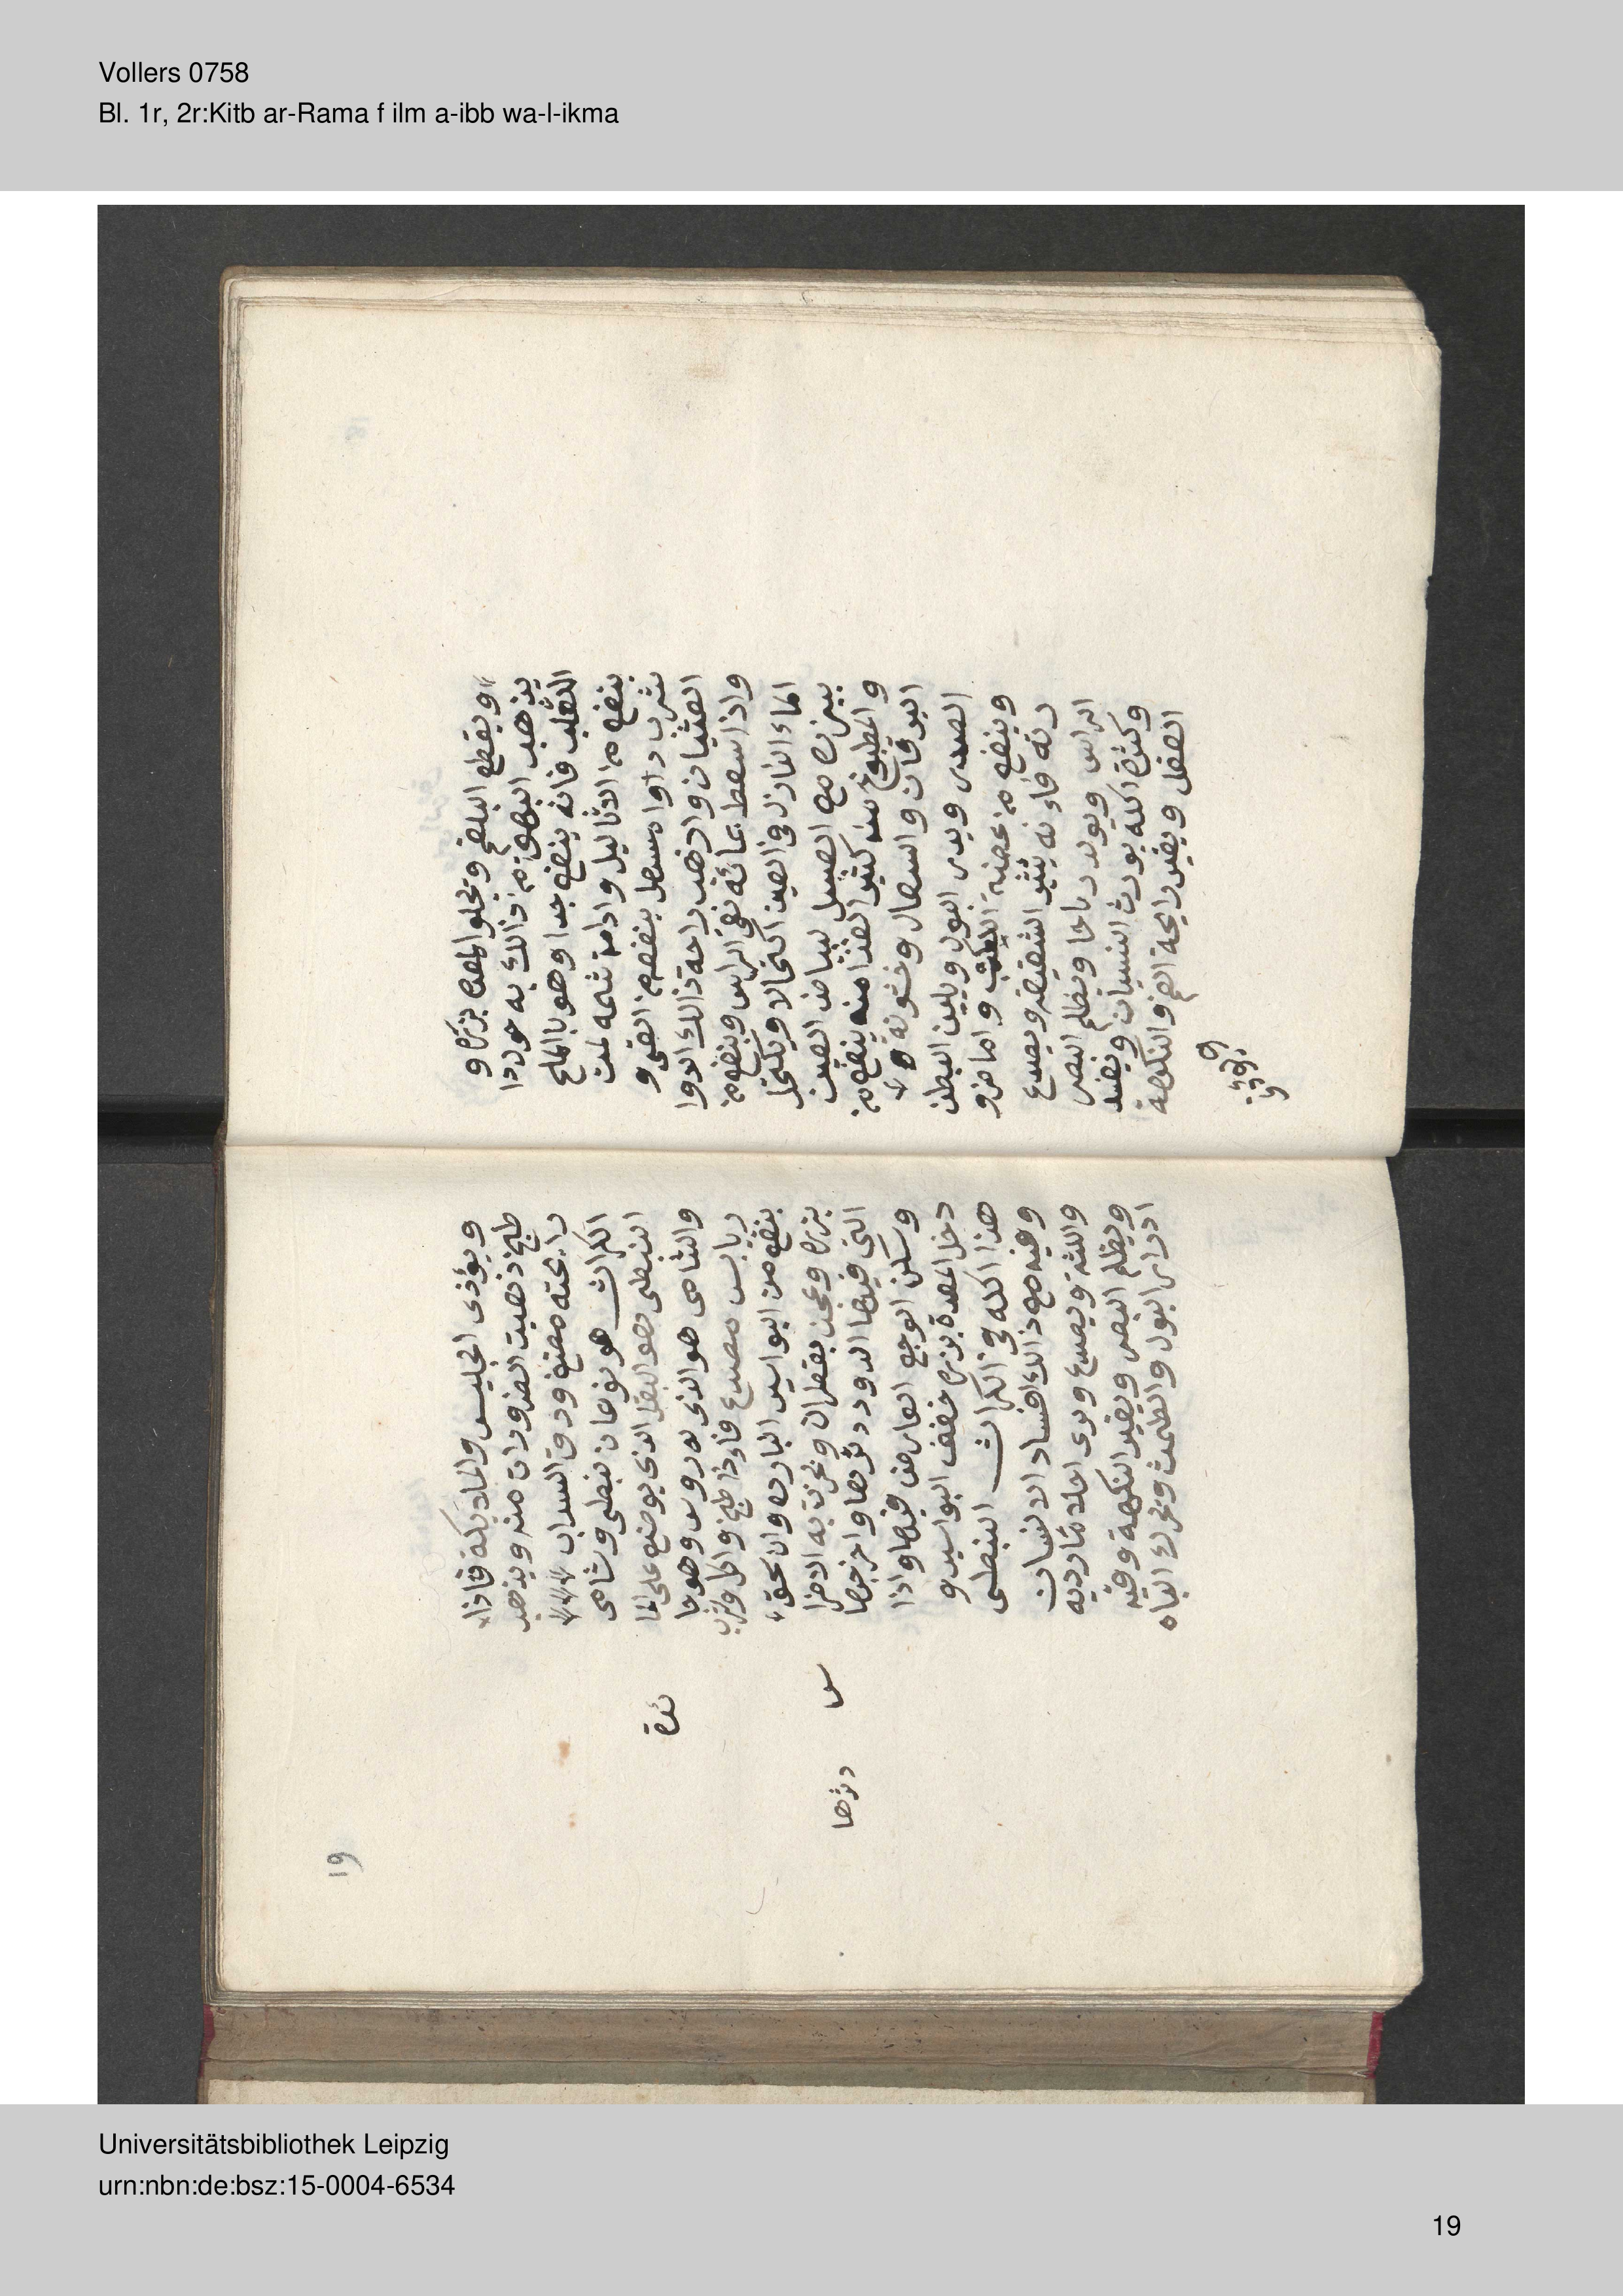 Vollers 0758
Bl. 1r, 2r:Kitb ar-Rama f ilm a-ibb wa-l-ikma
ويقطع البلغم ويجلو المعدة بزره و
يذهب البهق من ذالك به حوددا
الثعلب فانه ينفع جدا وهو بالملح
ينفع من الاثاليل وادامة شمه لمن
شرب دواء مسهل ينفع من القي و
الغثيان واذهب راحة ذالك الدوا
واذا سعط بمائه نقى الراس وينفع من
الماء النازل في العين اكتحالا ويكتحل
ببزره مع العسل لبياض العين
والمطبوخ منه كثير الغذا منه ينفع من
اليرقان والسعال وخشونة
الصدر ويدر البول ويلين البطن
وينفع من عضة الكلب واما ضرو
رته فاءنه يثير الشقيقة ويصدع
الراس ويولد رياحا ويظلم البصر
وكثرة اكله يورث النسيان ويفسد
العقل ويغير رايحة الفم والنكهة
ويؤذى
19
ويؤذى الجليس والملايكة فاذا
طبخ ذهبت الضرورات منه ويذهب
رايحته مضغ ورق السداب
الكراث هو نوعان نبطي وشامي
النبطي هو البقل الذي يوضع على الما
ئدة
والشامي هو الذي له روس وهو حا
ر يابس مصدع فاءذا طبخ واكل وشرب
ينفع من البواسير الباردة وان سحق
بزره وعجن بقطران وبخرت به الاضرا
س
التي فيها الدود نثرها واخرجها
درها
وسكن الوجع العارض فيها واذا
دخن المعدة بزره خفف البواسير و
هذا اكله في الكراث النبطي
وفيه مع ذالك افساد الاسنان
واللثة ويصدع ويرى احلاما ردية
ويظلم البصر ويغير النكهة وفيه
ادرار البول والطمث وتحريك الباه
Universitätsbibliothek Leipzig
urn:nbn:de:bsz:15-0004-6534
19